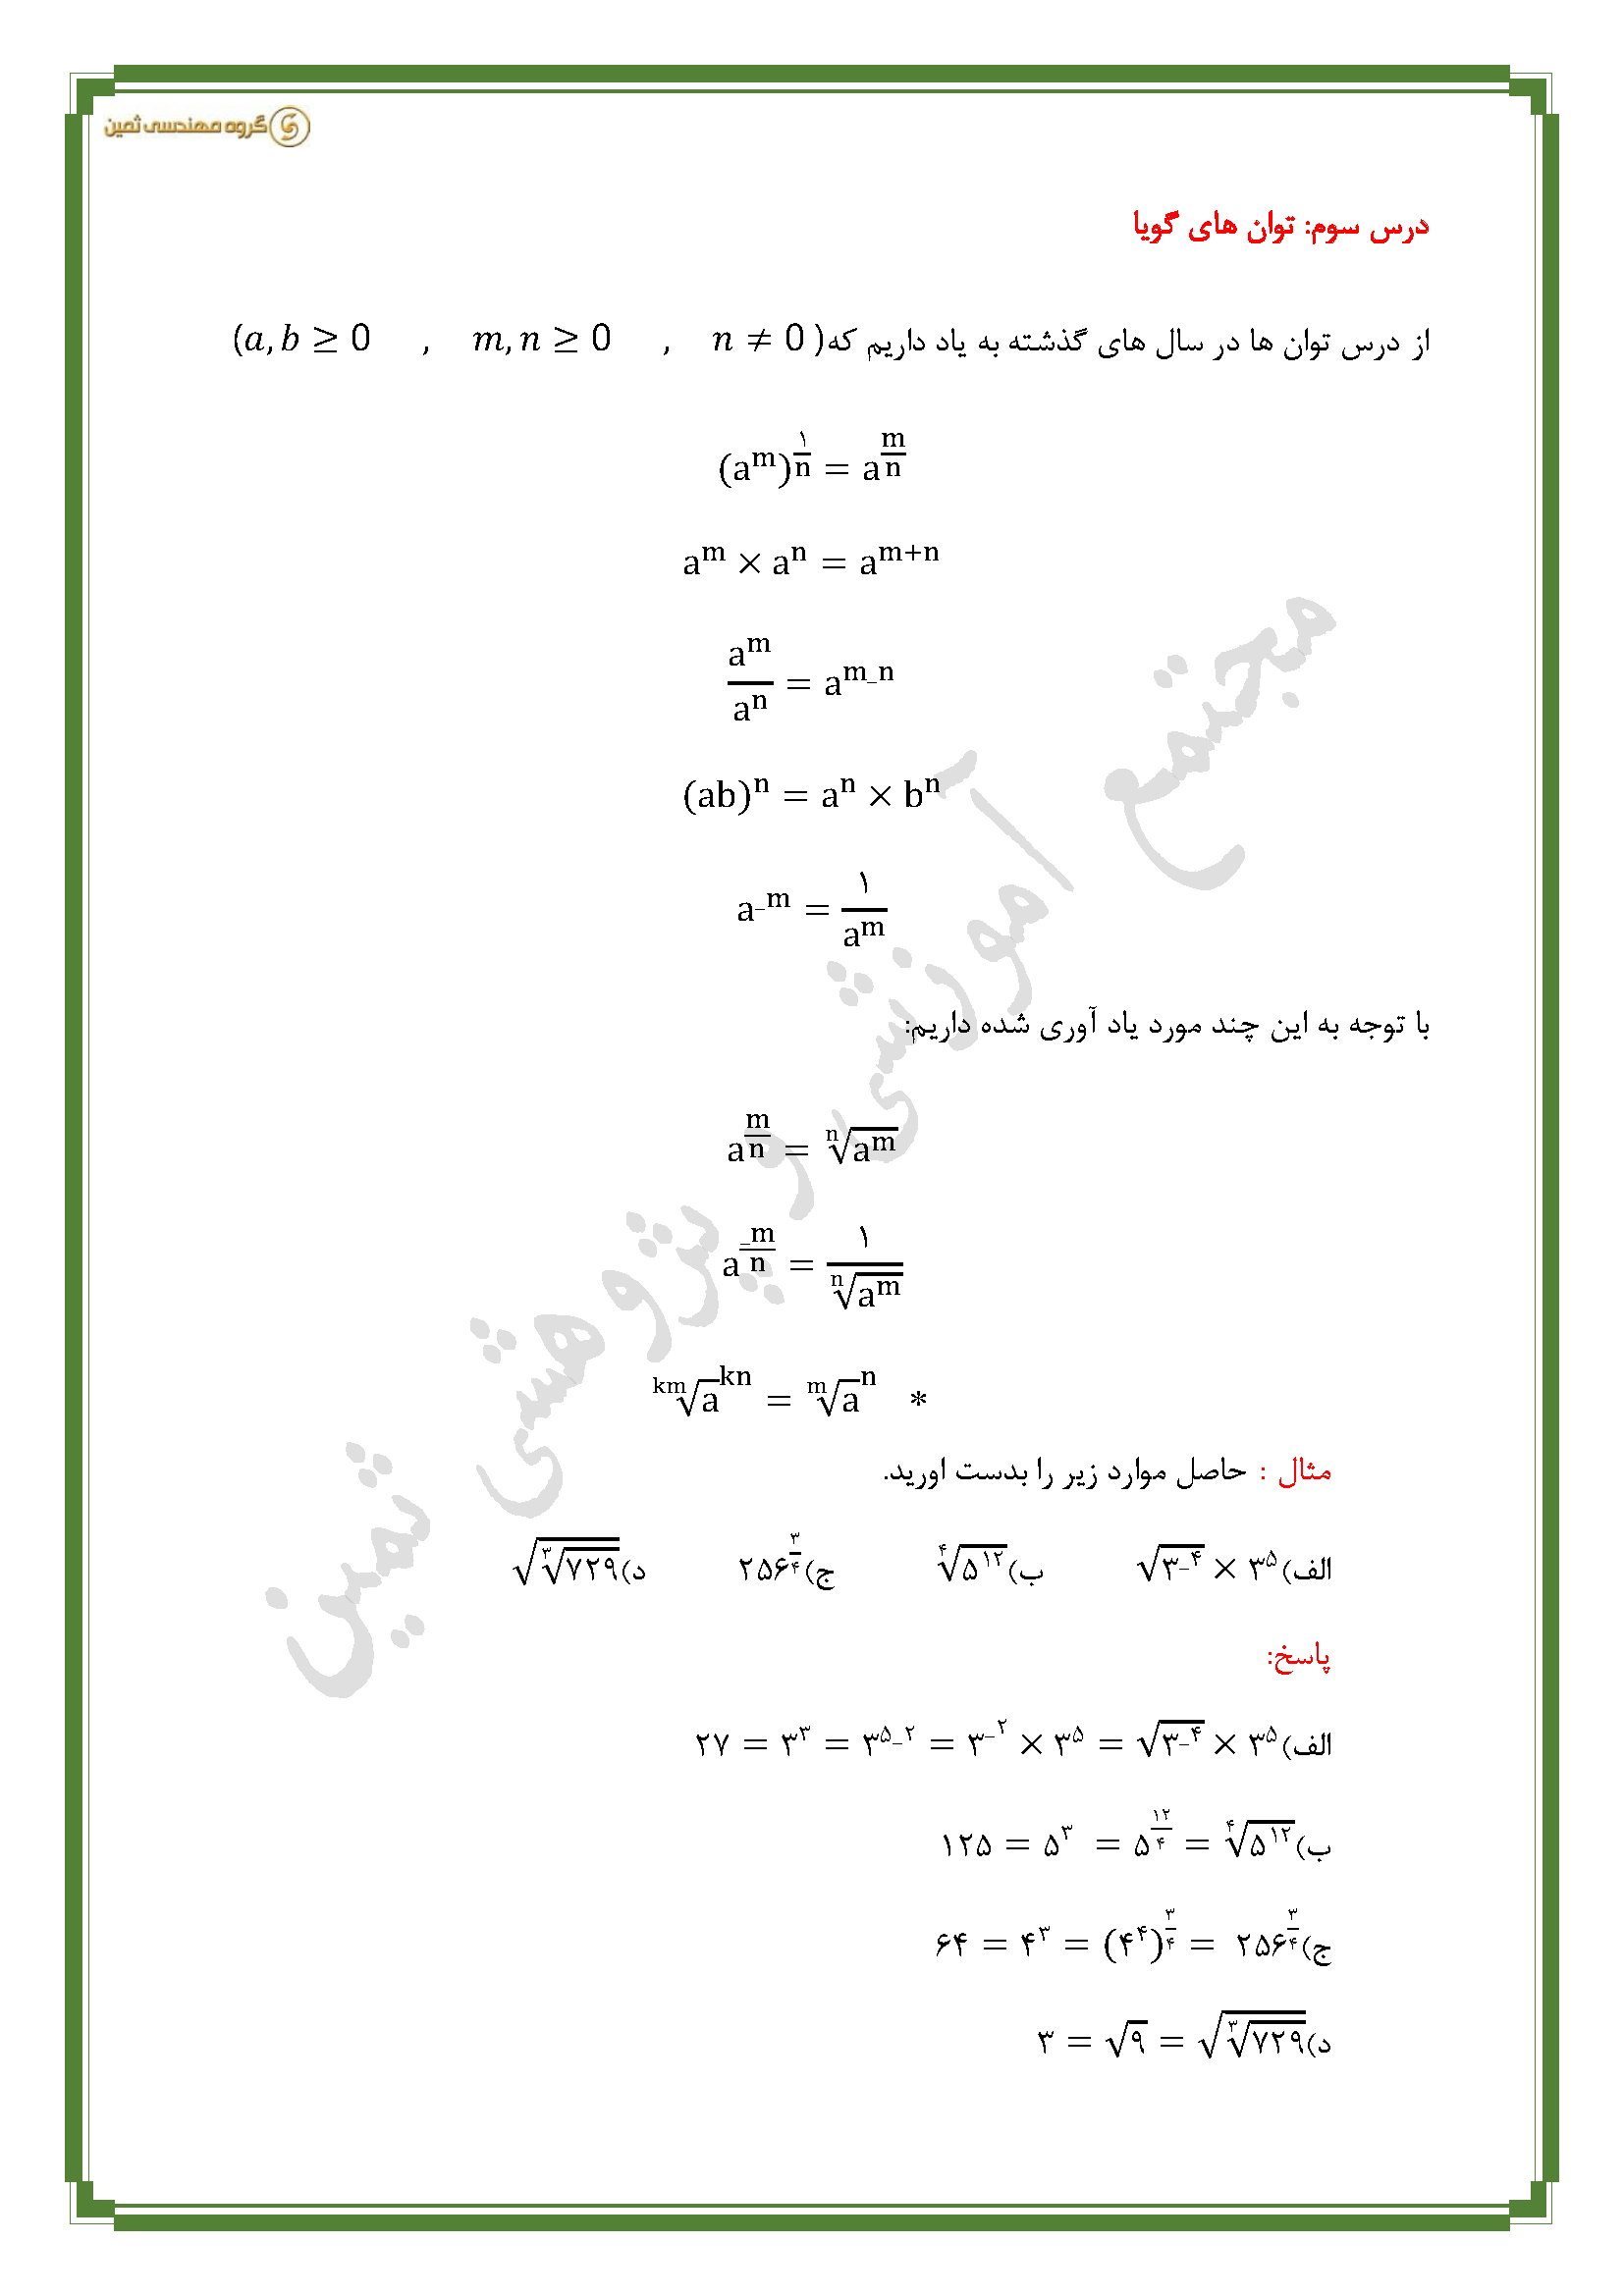 گروه مهندسی ثمین
درس سوم: توان های گویا
از درس توان ها در سال های گذشته به یاد داریم که (a, b ≥ 0 , m, n ≥ 0 , n ≠ 0)
(a^m)^(۱/n) = a^(m/n)
a^m × a^n = a^(m+n)
a^m / a^n = a^(m_n)
(ab)^n = a^n × b^n
a^(_m) = ۱ / a^m
با توجه به این چند مورد یاد آوری شده داریم:
a^(m/n) = ⁿ√(a^m)
a^(_m/n) = ۱ / ⁿ√(a^m)
ᵏᵐ√a^(kn) = ᵐ√a^n *
مثال : حاصل موارد زیر را بدست اورید.
الف) √(۳^_۴) × ۳^۵ ب) ۴√(۵^۱۲) ج) ۲۵۶^(۳/۴) د) √(۳√۷۲۹)
پاسخ:
الف) ۲۷ = ۳^۳ = ۳^(۵_۲) = ۳^(_۲) × ۳^۵ = √(۳^_۴) × ۳^۵
ب) ۱۲۵ = ۵^۳ = ۵^(۱۲/۴) = ۴√(۵^۱۲)
ج) ۶۴ = ۴^۳ = (۴^۴)^(۳/۴) = ۲۵۶^(۳/۴)
د) ۳ = √۹ = √(۳√۷۲۹)
مجتمع آموزشی و پژوهشی ثمین